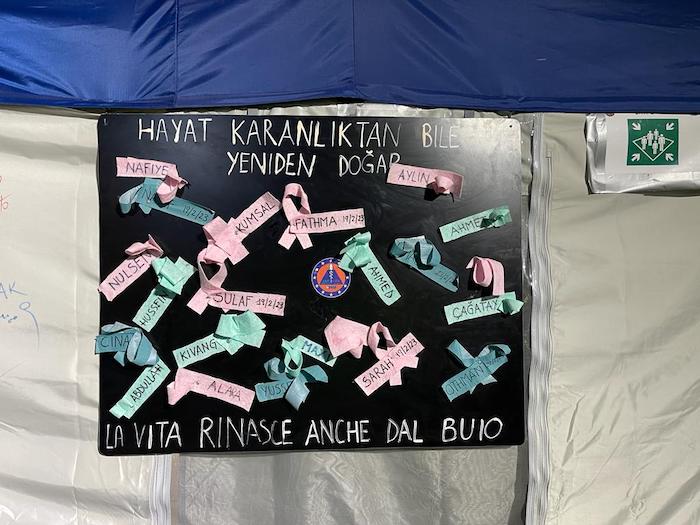 HAYAT KARANLIKTAN BILE
YENIDEN DOĞAR
NAFIYE
19/2/23
AYLIN
KUMSAL
FATHMA 19/2/23
AHMED
NULSEN
HUSSEIN
AHMED
SULAF 19/2/23
ÇAĞATAY
CINA
KIVANÇ
MAX
ABDULLAH
ALAA
YUSSE
SARAH 19/2/23
OTHMAN
LA VITA RINASCE ANCHE DAL BUIO